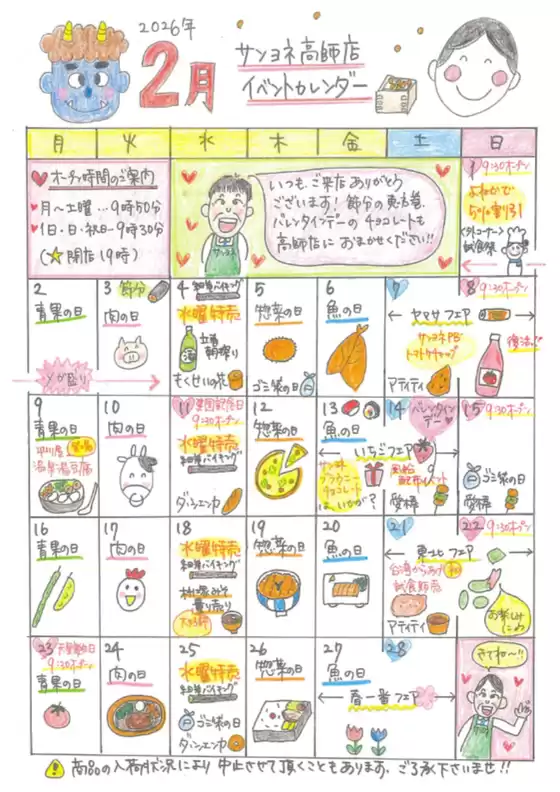 2026年
2月
サンヨネ高師店
イベントカレンダー
月 火 水 木 金 土 日
オープン時間のご案内
月～土曜…9時50分
1日・日・祝日…9時30分
(★閉店19時)
いつも、ご来店ありがとう
ございます!節分の恵方巻、
バレンタインデーのチョコレートも
高師店におまかせください!!
サンヨネ
1 9:30オープン
よねかで
5%割引
<外コーナー>
試食祭
2
青果の日
3 節分
肉の日
4
水曜特売
立春
朝搾り
もくせいの花
5
惣菜の日
ゴミ袋の日
6
魚の日
7
ヤマサフェア
サンヨネPB
トマトケチャップ
アティティ
8 9:30オープン
復活!!
メガ盛り
9
青果の日
温泉湯豆腐
10
肉の日
11 建国記念日
9:30オープン
水曜特売
ダーシェンカ
12
惣菜の日
13
魚の日
いちごフェア
ブラウニー
チョコレート
はいかが?
14 バレンタイン
デー
風船
配布イベント
愛様
15 9:30オープン
ゴミ袋の日
愛様
16
青果の日
17
肉の日
18
水曜特売
量り売り
19
惣菜の日
20
魚の日
21
東北フェア
台湾からあげ
試食販売
アティティ
22 9:30オープン
お楽しみ
23 天皇誕生日
9:30オープン
青果の日
24
肉の日
25
水曜特売
ゴミ袋の日
ダーシェンカ
26
惣菜の日
27
魚の日
春一番フェア
28
きてね〜!!
商品の入荷状況により中止させて頂くこともあります。ご了承下さいませ!!